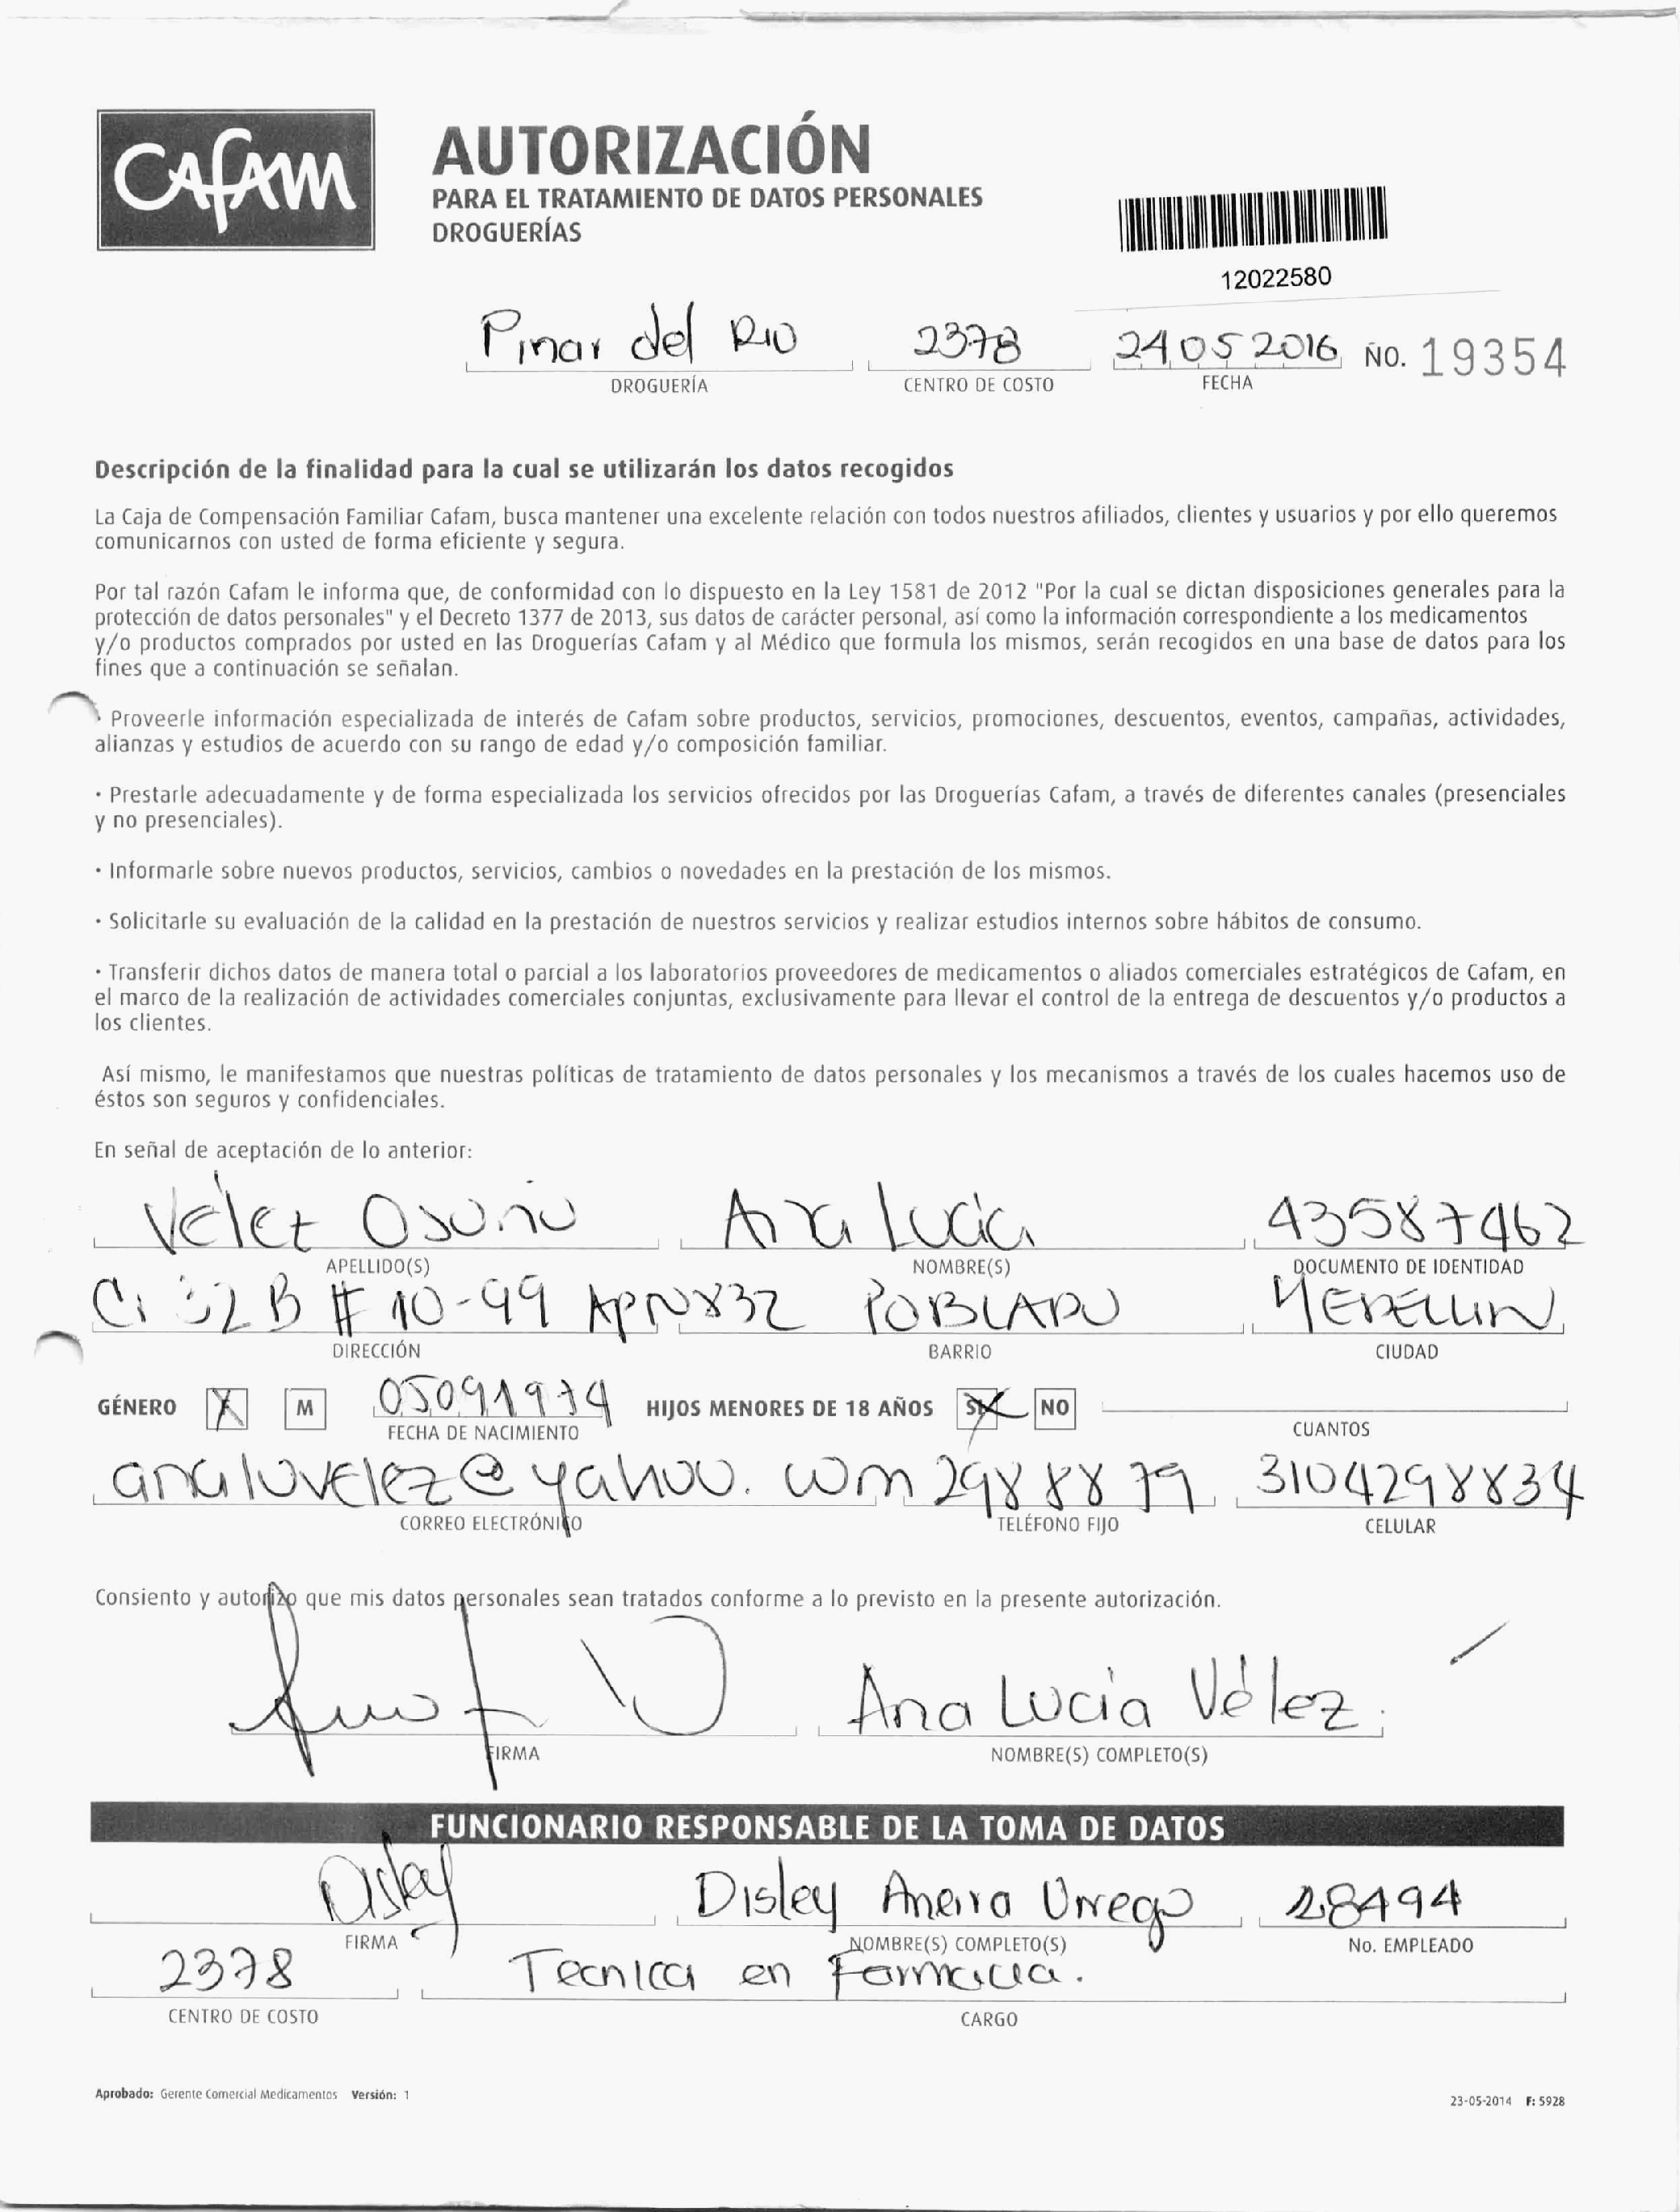 CAFAM
AUTORIZACIÓN
PARA EL TRATAMIENTO DE DATOS PERSONALES
DROGUERÍAS
12022580
Pinar del Rio 2378 24 05 2016 ÑO. 19354
DROGUERÍA CENTRO DE COSTO FECHA
Descripción de la finalidad para la cual se utilizarán los datos recogidos
La Caja de Compensación Familiar Cafam, busca mantener una excelente relación con todos nuestros afiliados, clientes y usuarios y por ello queremos
comunicarnos con usted de forma eficiente y segura.
Por tal razón Cafam le informa que, de conformidad con lo dispuesto en la Ley 1581 de 2012 "Por la cual se dictan disposiciones generales para la
protección de datos personales" y el Decreto 1377 de 2013, sus datos de carácter personal, así como la información correspondiente a los medicamentos
y/o productos comprados por usted en las Droguerías Cafam y al Médico que formula los mismos, serán recogidos en una base de datos para los
fines que a continuación se señalan.
· Proveerle información especializada de interés de Cafam sobre productos, servicios, promociones, descuentos, eventos, campañas, actividades,
alianzas y estudios de acuerdo con su rango de edad y/o composición familiar.
· Prestarle adecuadamente y de forma especializada los servicios ofrecidos por las Droguerías Cafam, a través de diferentes canales (presenciales
y no presenciales).
· Informarle sobre nuevos productos, servicios, cambios o novedades en la prestación de los mismos.
· Solicitarle su evaluación de la calidad en la prestación de nuestros servicios y realizar estudios internos sobre hábitos de consumo.
· Transferir dichos datos de manera total o parcial a los laboratorios proveedores de medicamentos o aliados comerciales estratégicos de Cafam, en
el marco de la realización de actividades comerciales conjuntas, exclusivamente para llevar el control de la entrega de descuentos y/o productos a
los clientes.
Así mismo, le manifestamos que nuestras políticas de tratamiento de datos personales y los mecanismos a través de los cuales hacemos uso de
éstos son seguros y confidenciales.
En señal de aceptación de lo anterior:
Velez Osorio Ana Lucia 43587462
APELLIDO(S) NOMBRE(S) DOCUMENTO DE IDENTIDAD
32B # 10-99 POBLADO MEDELLIN
DIRECCIÓN BARRIO CIUDAD
GÉNERO M 05091974 HIJOS MENORES DE 18 AÑOS SI NO
FECHA DE NACIMIENTO CUANTOS
analuvelez@yahoo.com 2988879 3104298834
CORREO ELECTRÓNICO TELÉFONO FIJO CELULAR
Consiento y autorizo que mis datos personales sean tratados conforme a lo previsto en la presente autorización.
Ana Lucia Vélez
FIRMA NOMBRE(S) COMPLETO(S)
FUNCIONARIO RESPONSABLE DE LA TOMA DE DATOS
Disley Disley Urrego 28494
FIRMA NOMBRE(S) COMPLETO(S) No. EMPLEADO
2378 Tecnica en Farmacia.
CENTRO DE COSTO CARGO
Aprobado: Gerente Comercial Medicamentos Versión: 1
23-05-2014 F: 5928